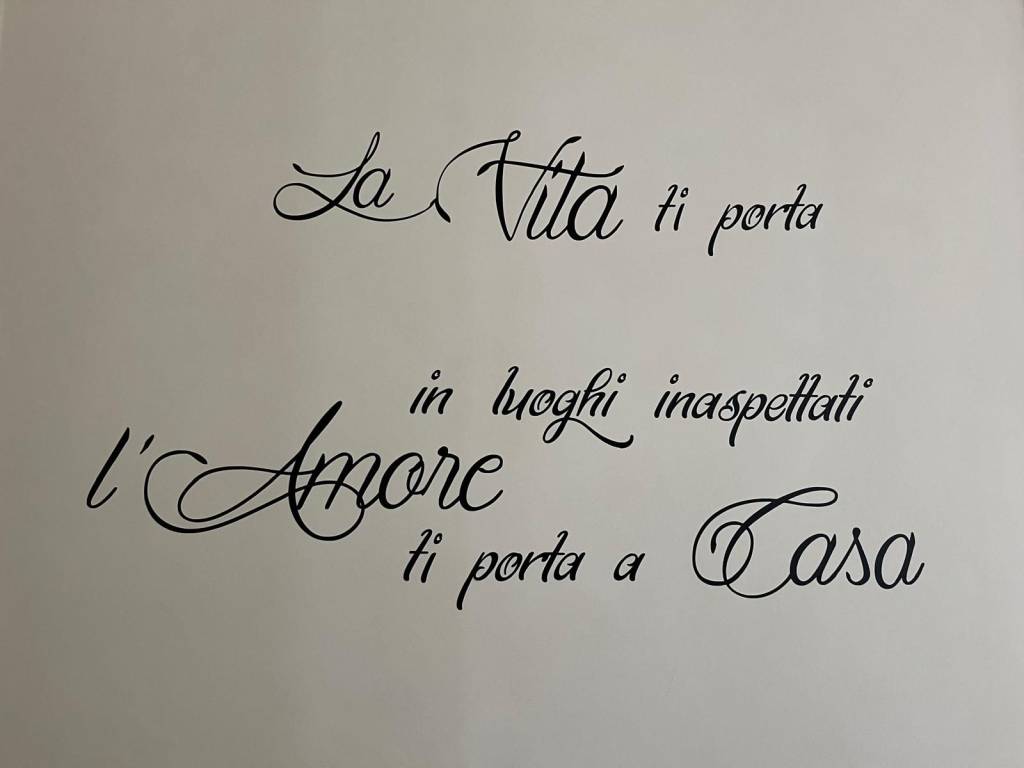 La Vita ti porta
in luoghi inaspettati
l'Amore
ti porta a Casa